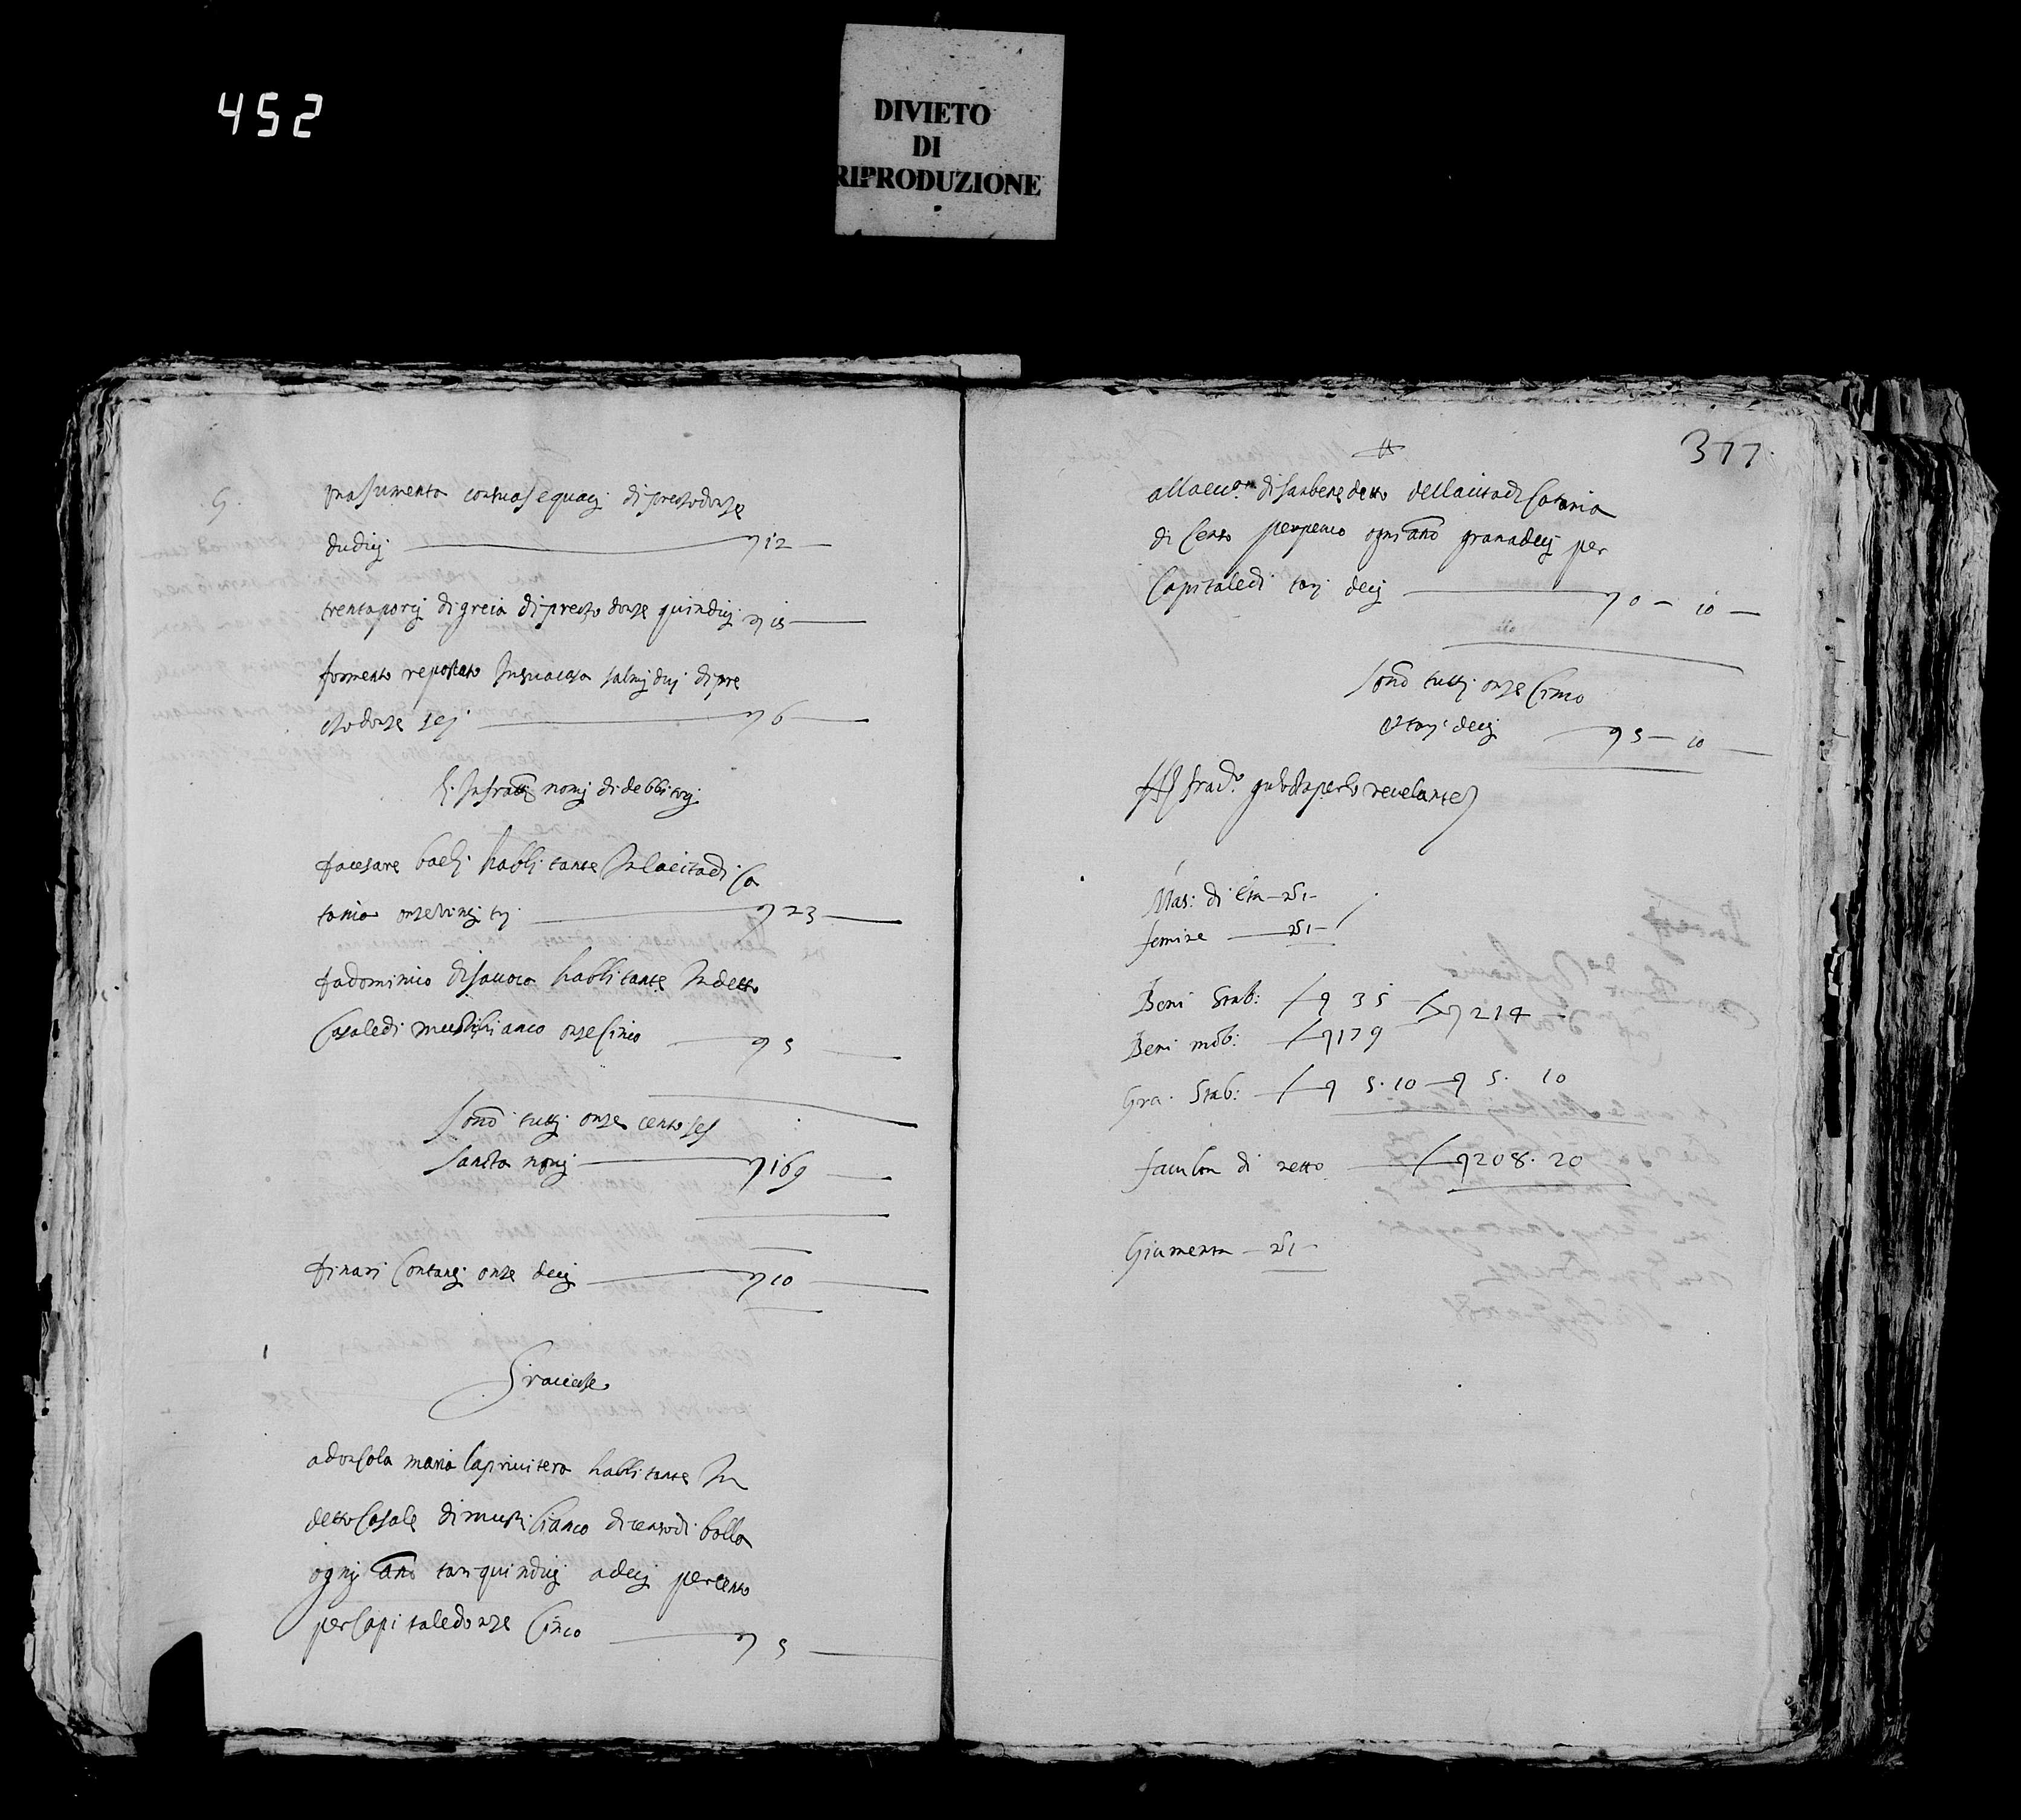 452
DIVIETO
DI
RIPRODUZIONE
una Jumenta con sua sequacj di prezzo donze
dudicj 12
trenta porcj di greia di prezzo donze quindicj 15
formento repostato In sua casa salmj duj di pre
zzo donze sej 6
li Infratti nomj di debbitorj
Cesare habbitante In la cita di Ca
tania onze vintj trj 23
dominico habbitante In detto
Casale di onze Cinco 5
Sono tuttj onze cento ses
santa novj 169
dinari Contantj onze decj 10
Gravezze
a donsola maria la privitera habbitante In
detto Casale di di censo di bolla
ognj anno tari quindicj a decj per cento
per Capitale donze Cinco 5
377
di san benedetto della cita di Catania
di Censo perpetuo ogni anno grana decj per
Capitale di tarj decj 0 – 10
Sono tuttj onze Cinco
et tarj decj 5 – 10
revelante
Mas: di Eta – n° 1 –
femine – n° 1 –
Beni Stab: 35 214
Beni mob: 179
Gra. Stab: 5. 10 5. 10
facultà di netto 208. 20
Giumenta – n° 1 –